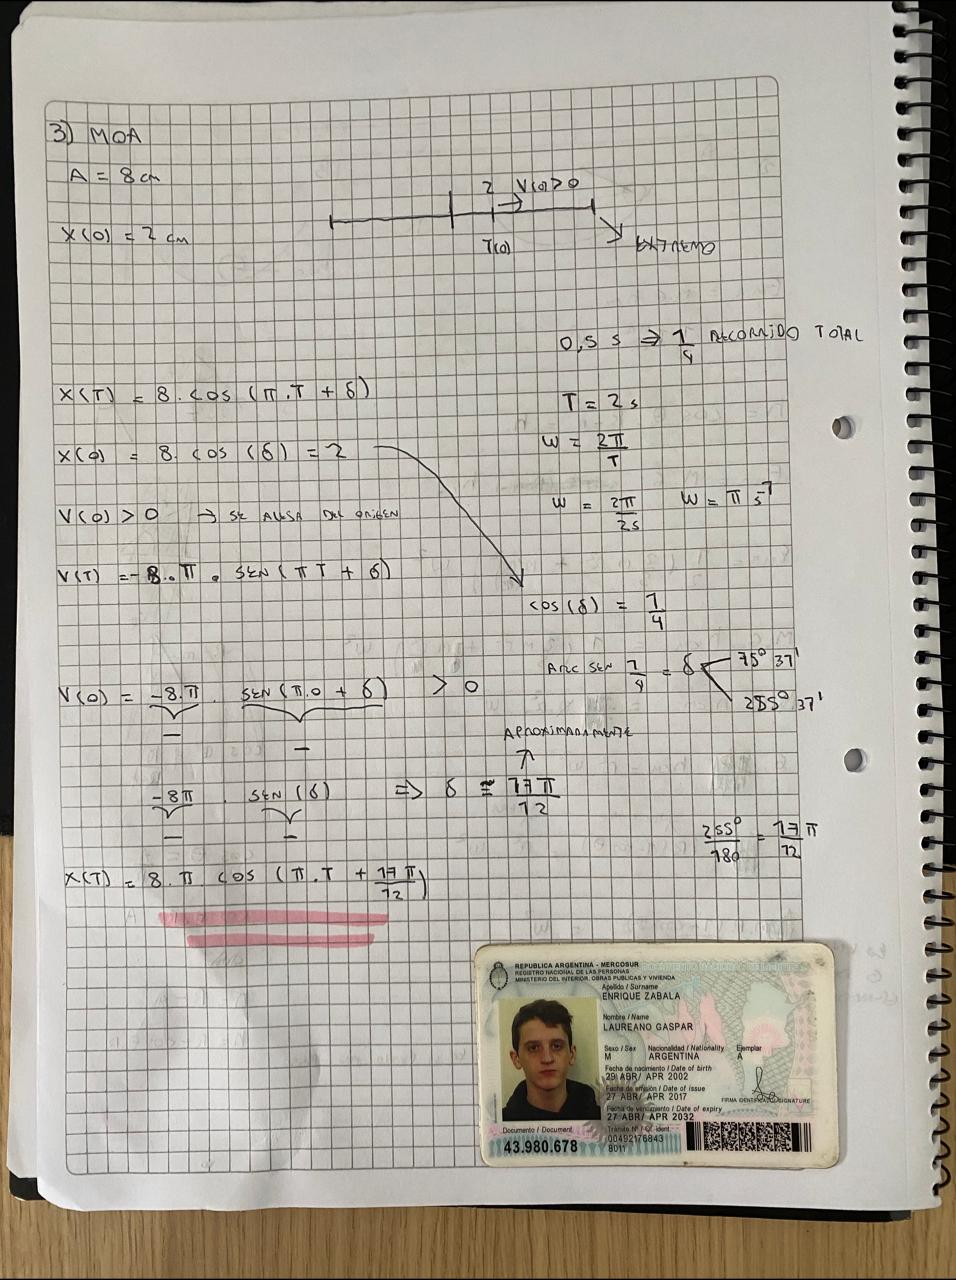 3) MOA
A = 8 cm
2 V(0) > 0
X(0) = 2 cm
T(0) EXTREMO
0,5 s ⇒ 1/4 RECORRIDO TOTAL
X(T) = 8. COS (π.T + δ)
T = 2 s
X(0) = 8. COS (δ) = 2
W = 2π/T
V(0) > 0 → SE ALEJA DEL ORIGEN
W = 2π/2s W = π s⁻¹
V(T) = -8.π . SEN (π T + δ)
COS (δ) = 1/4
ARC SEN 1/4 = δ
75° 37'
255° 37'
V(0) = -8.π . SEN (π.0 + δ) > 0
— —
APROXIMADAMENTE
-8π . SEN (δ) ⇒ δ ≅ 17π/12
— —
255°/180 = 17π/12
X(T) = 8. π. COS (π.T + 17π/12)
REPUBLICA ARGENTINA - MERCOSUR
REGISTRO NACIONAL DE LAS PERSONAS
MINISTERIO DEL INTERIOR, OBRAS PUBLICAS Y VIVIENDA
Apellido / Surname
ENRIQUE ZABALA
Nombre / Name
LAUREANO GASPAR
Sexo / Sex Nacionalidad / Nationality Ejemplar
M ARGENTINA A
Fecha de nacimiento / Date of birth
29 ABR/ APR 2002
Fecha de emisión / Date of issue
27 ABR/ APR 2017
FIRMA IDENTIFICADO / SIGNATURE
Fecha de vencimiento / Date of expiry
27 ABR/ APR 2032
Documento / Document
43.980.678
Trámite Nº / Of. ident
00492176843
8011